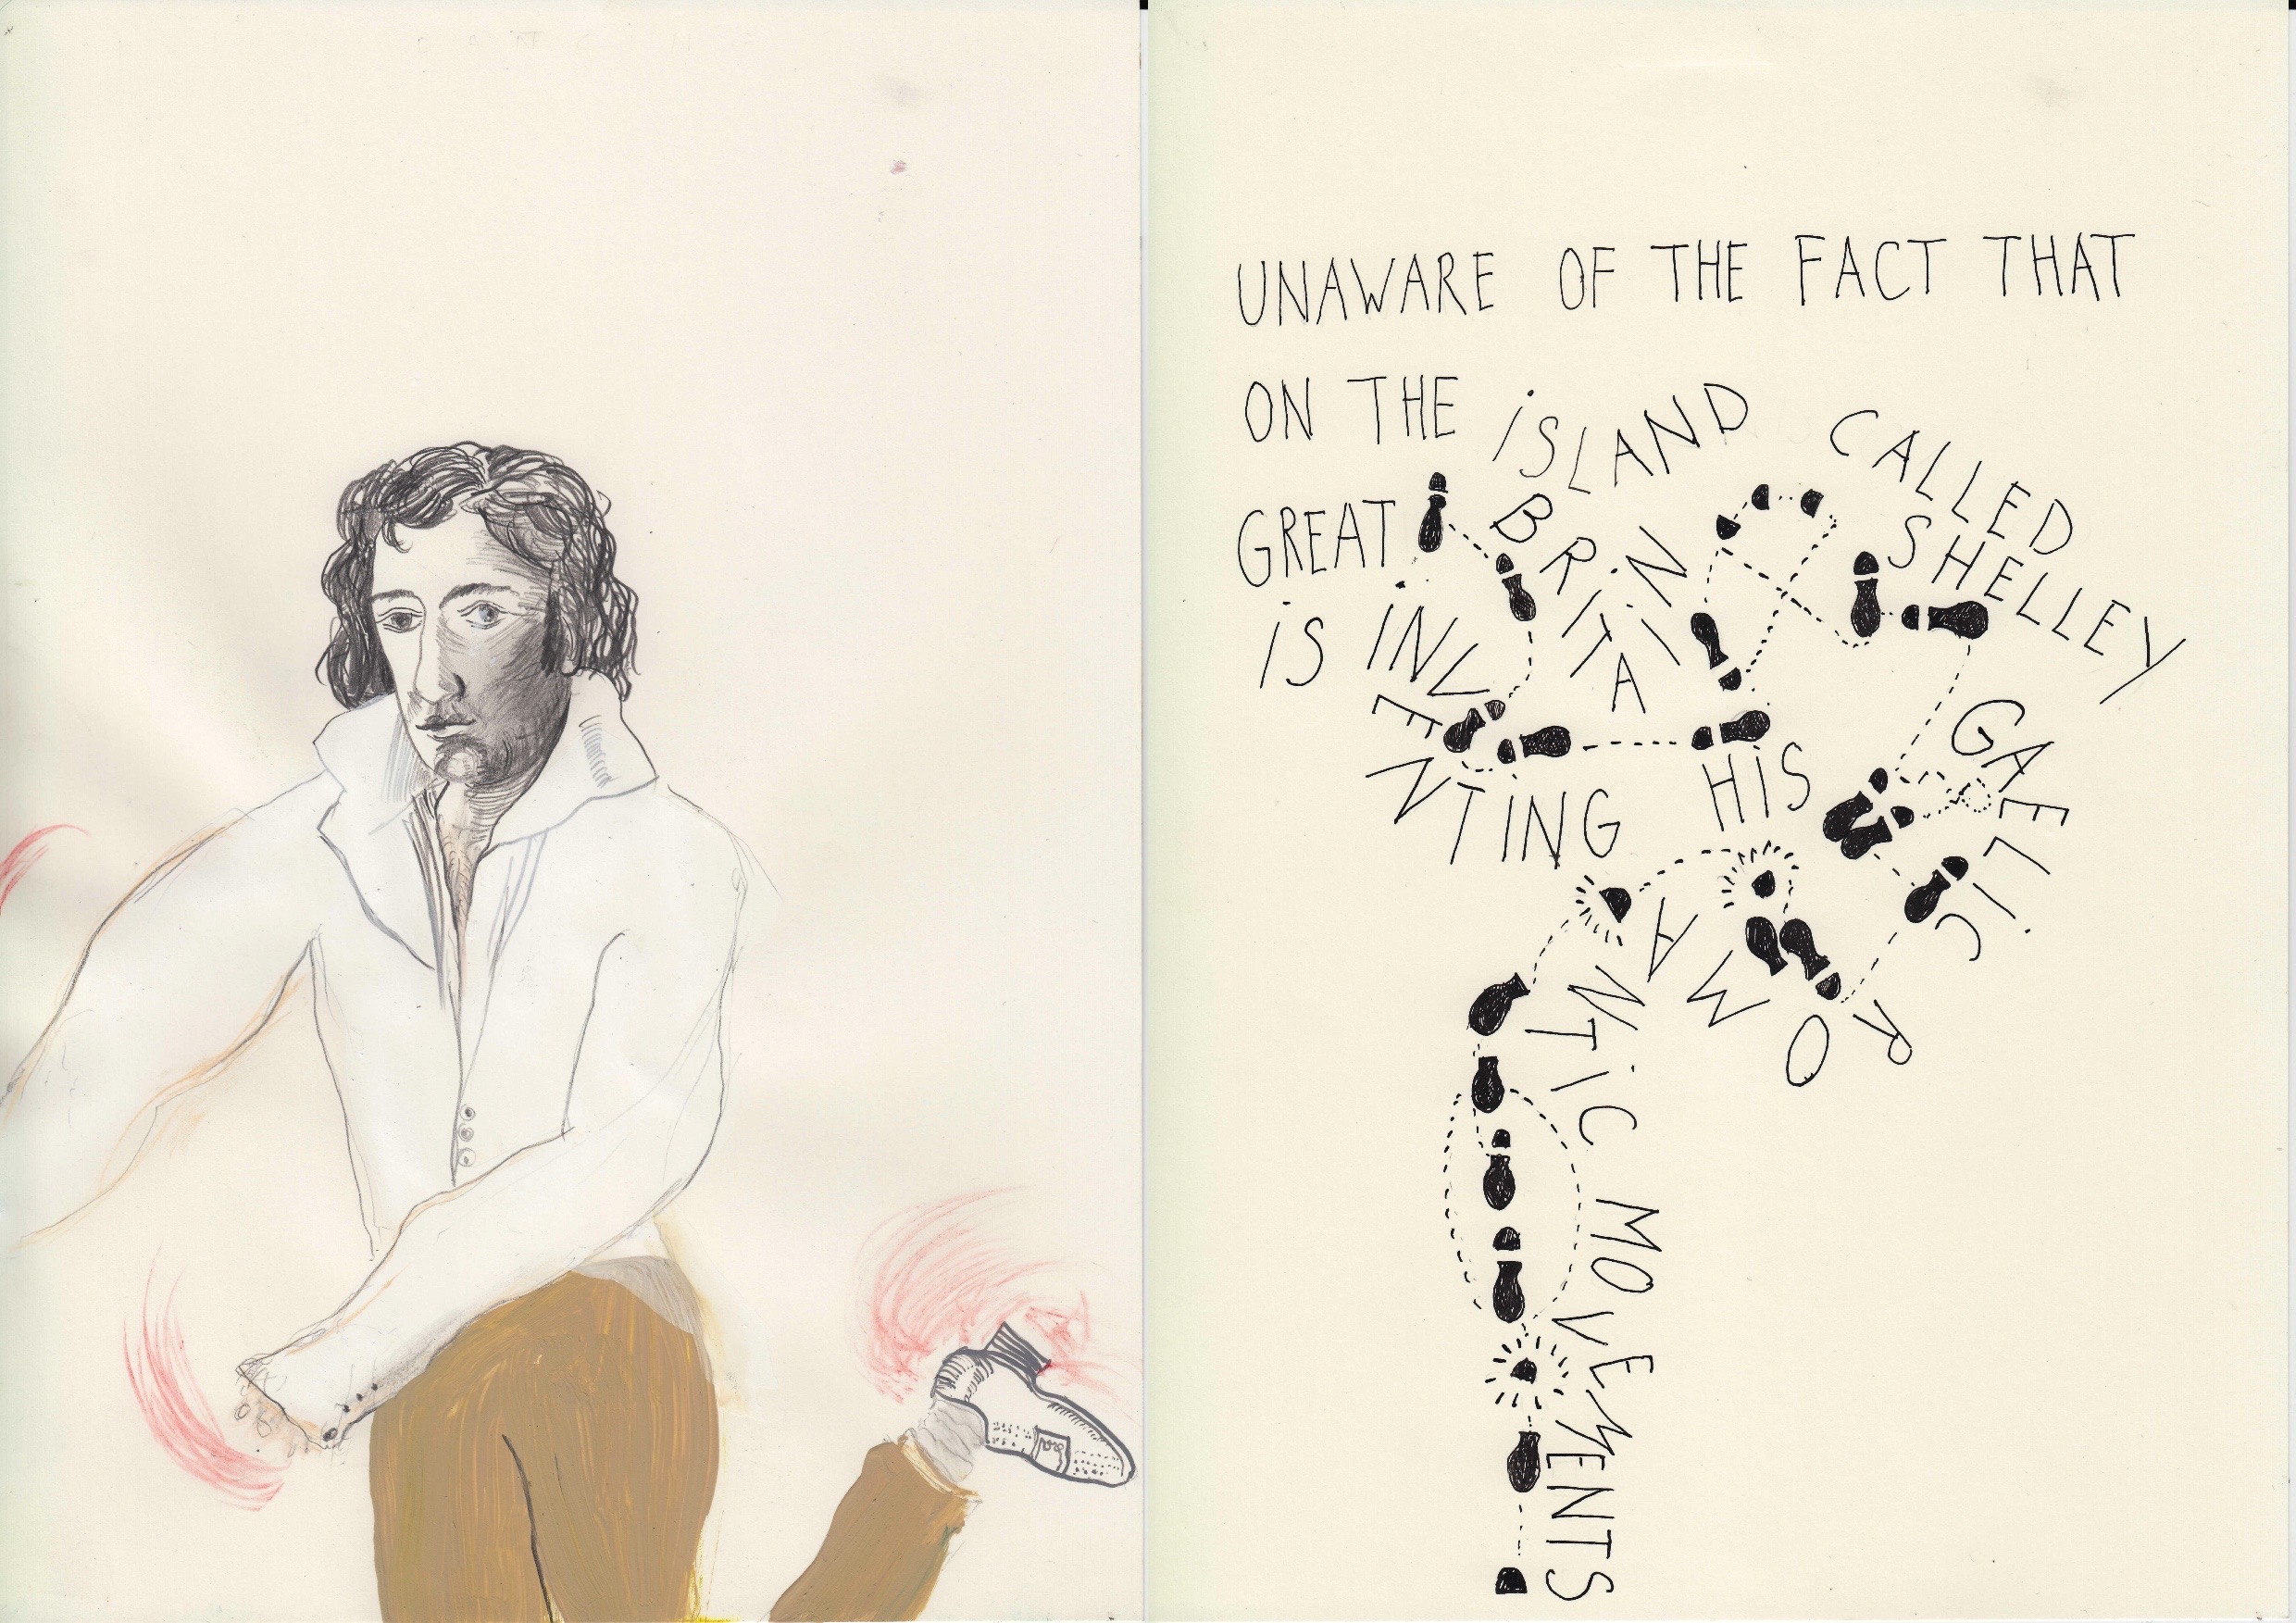 UNAWARE OF THE FACT THAT
ON THE ISLAND CALLED
GREAT BRITAIN SHELLEY
IS INVENTING HIS GAELIC
ROMANTIC MOVEMENTS